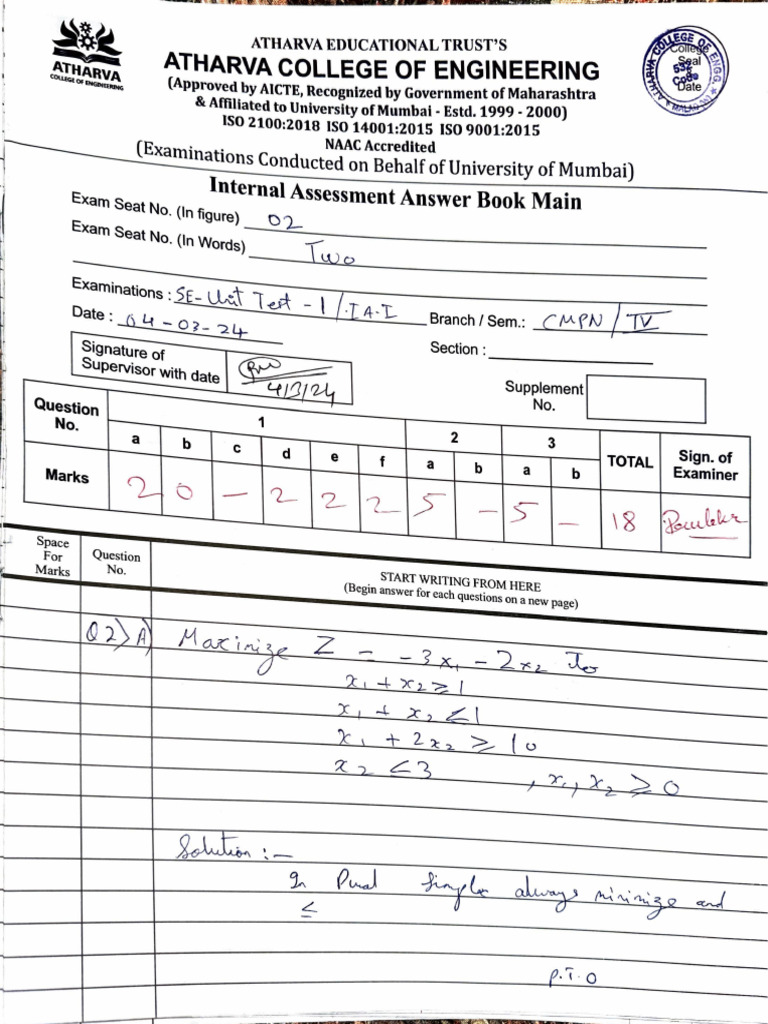 ATHARVA
COLLEGE OF ENGINEERING
ATHARVA EDUCATIONAL TRUST'S
ATHARVA COLLEGE OF ENGINEERING
(Approved by AICTE, Recognized by Government of Maharashtra
& Affiliated to University of Mumbai - Estd. 1999 - 2000)
ISO 2100:2018 ISO 14001:2015 ISO 9001:2015
NAAC Accredited
(Examinations Conducted on Behalf of University of Mumbai)
ATHARVA COLLEGE OF ENGG.
College
Seal
532
&
Code
Date
Internal Assessment Answer Book Main
Exam Seat No. (In figure) 02
Exam Seat No. (In Words) Two
Examinations : SE-Unit Test - 1 / IA-I
Date : 04-03-24
Branch / Sem.: CMPN / IV
Section :
Signature of
Supervisor with date
4/3/24
Supplement
No.
Question No. 1 2 3 TOTAL Sign. of Examiner
a b c d e f a b a b
Marks 2 0 - 2 2 2 5 - 5 - 18
Space For Marks
Question No.
START WRITING FROM HERE
(Begin answer for each questions on a new page)
Q2) A) Maximize Z = -3x1 - 2x2 To
x1 + x2 ≥ 1
x1 + x2 ≤ 1
x1 + 2x2 ≥ 10
x2 ≤ 3 , x1, x2 ≥ 0
Solution :-
In Dual Simplex always minimize and
≤
P.T.O